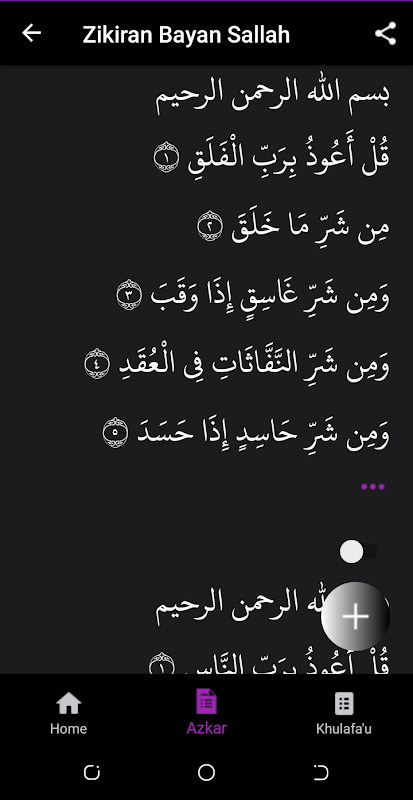 Zikiran Bayan Sallah
بسم الله الرحمن الرحيم
قُلْ أَعُوذُ بِرَبِّ الْفَلَقِ ١
مِن شَرِّ مَا خَلَقَ ٢
وَمِن شَرِّ غَاسِقٍ إِذَا وَقَبَ ٣
وَمِن شَرِّ النَّفَّاثَاتِ فِي الْعُقَدِ ٤
وَمِن شَرِّ حَاسِدٍ إِذَا حَسَدَ ٥
الرحمن الرحيم
قُلْ أَعُوذُ بِرَبِّ النَّاسِ ١
Home
Azkar
Khulafa'u